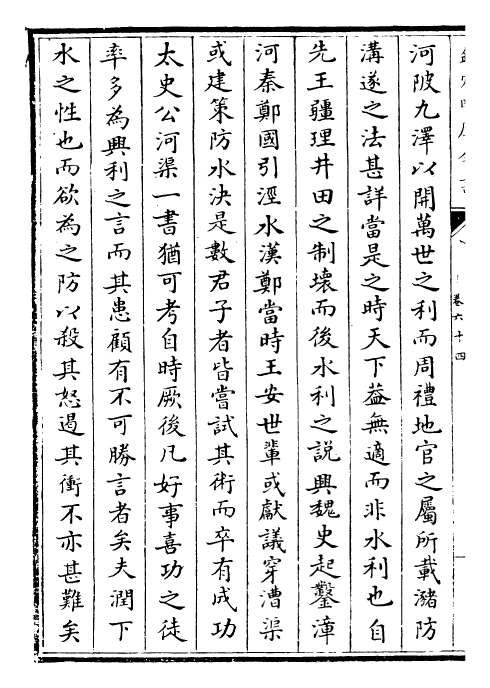 河陂九澤以開萬世之利而周禮地官之屬所載瀦防
溝遂之法甚詳當是之時天下葢無適而非水利也自
先王疆理井田之制壞而後水利之説興魏史起鑿漳
河秦鄭國引涇水漢鄭當時王安世輩或獻議穿漕渠
或建策防水決是數君子者皆嘗試其術而卒有成功
太史公河渠一書猶可考自時厥後凡好事喜功之徒
率多為興利之言而其患顧有不可勝言者矣夫潤下
水之性也而欲為之防以殺其怒遏其衝不亦甚難矣
卷六十四